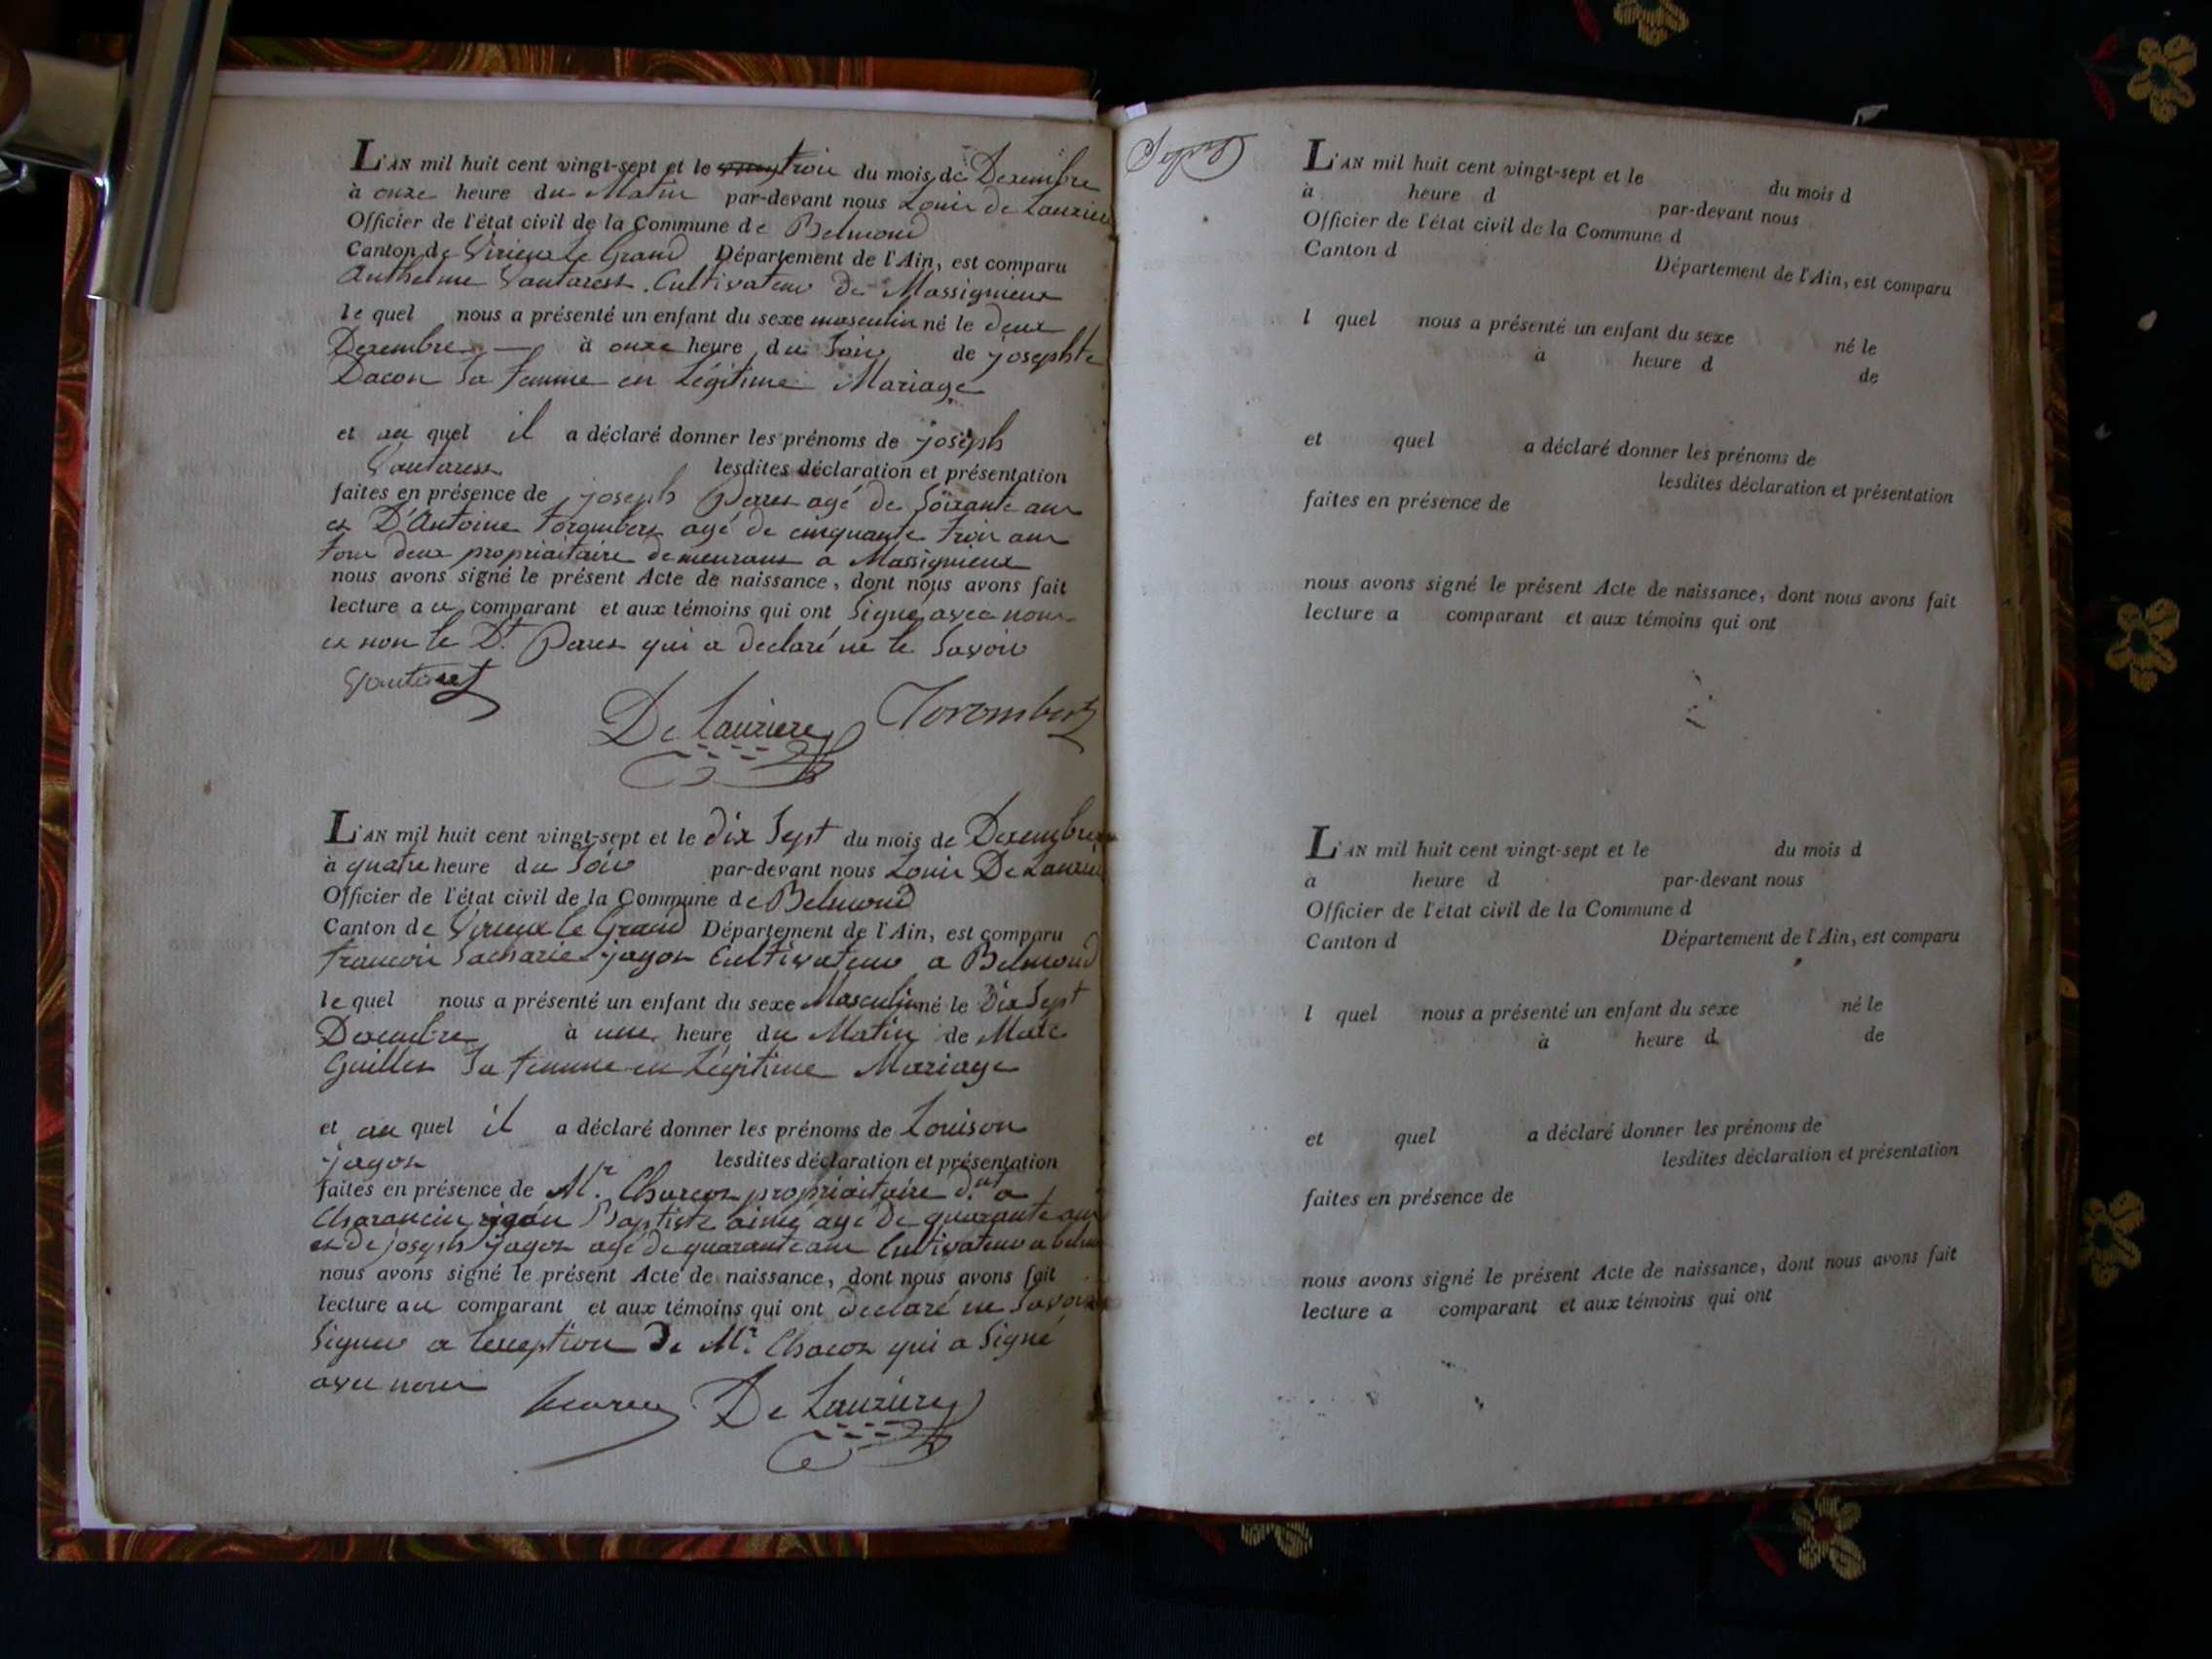 L'AN mil huit cent vingt-sept et le trois du mois de Decembre
à onze heure du Matin par-devant nous Louis de Lauzier
Officier de l'état civil de la Commune de Belmond
Canton de Virieux le Grand Département de l'Ain, est comparu
Anthelme Vautaret Cultivateur de Massignieux
le quel nous a présenté un enfant du sexe masculin né le deux
Decembre à onze heure du Soir de josephte
Dacon Sa femme en Légitime Mariage
et au quel il a déclaré donner les prénoms de joseph
Vautaret lesdites déclaration et présentation
faites en présence de joseph Perret agé de Soixante ans
et D'Antoine Torombert agé de cinquante trois ans
tous deux propriaitaire demeurant a Massignieux
nous avons signé le présent Acte de naissance, dont nous avons fait
lecture au comparant et aux témoins qui ont Signé avec nous
et non le Dt. Perret qui a declaré ne le Savoir
Vautaret
De Lauziere Torombert
L'AN mil huit cent vingt-sept et le dix Sept du mois de Decembre
à quatre heure du Soir par-devant nous Louis De Lauzier
Officier de l'état civil de la Commune de Belmond
Canton de Virieux le Grand Département de l'Ain, est comparu
francois Sacharie jagot Cultivateur a Belmond
le quel nous a présenté un enfant du sexe Masculin né le Dix Sept
Decembre à une heure du Matin de
Guillet Sa femme en Légitime Mariage
et au quel il a déclaré donner les prénoms de Louison
jagot lesdites déclaration et présentation
faites en présence de Mr. propriaitaire a
Charancin Baptiste aimé agé de quarante ans
et de joseph jagot agé de quarante ans Cultivateur a
nous avons signé le présent Acte de naissance, dont nous avons fait
lecture au comparant et aux témoins qui ont declaré ne Savoir
Signer a lexception de Mr. qui a Signé
avec nous
De Lauziere
L'AN mil huit cent vingt-sept et le du mois d
à heure d par-devant nous
Officier de l'état civil de la Commune d
Canton d Département de l'Ain, est comparu
l quel nous a présenté un enfant du sexe né le
à heure d de
et quel a déclaré donner les prénoms de
lesdites déclaration et présentation
faites en présence de
nous avons signé le présent Acte de naissance, dont nous avons fait
lecture a comparant et aux témoins qui ont
L'AN mil huit cent vingt-sept et le du mois d
à heure d par-devant nous
Officier de l'état civil de la Commune d
Canton d Département de l'Ain, est comparu
l quel nous a présenté un enfant du sexe né le
à heure d de
et quel a déclaré donner les prénoms de
lesdites déclaration et présentation
faites en présence de
nous avons signé le présent Acte de naissance, dont nous avons fait
lecture a comparant et aux témoins qui ont